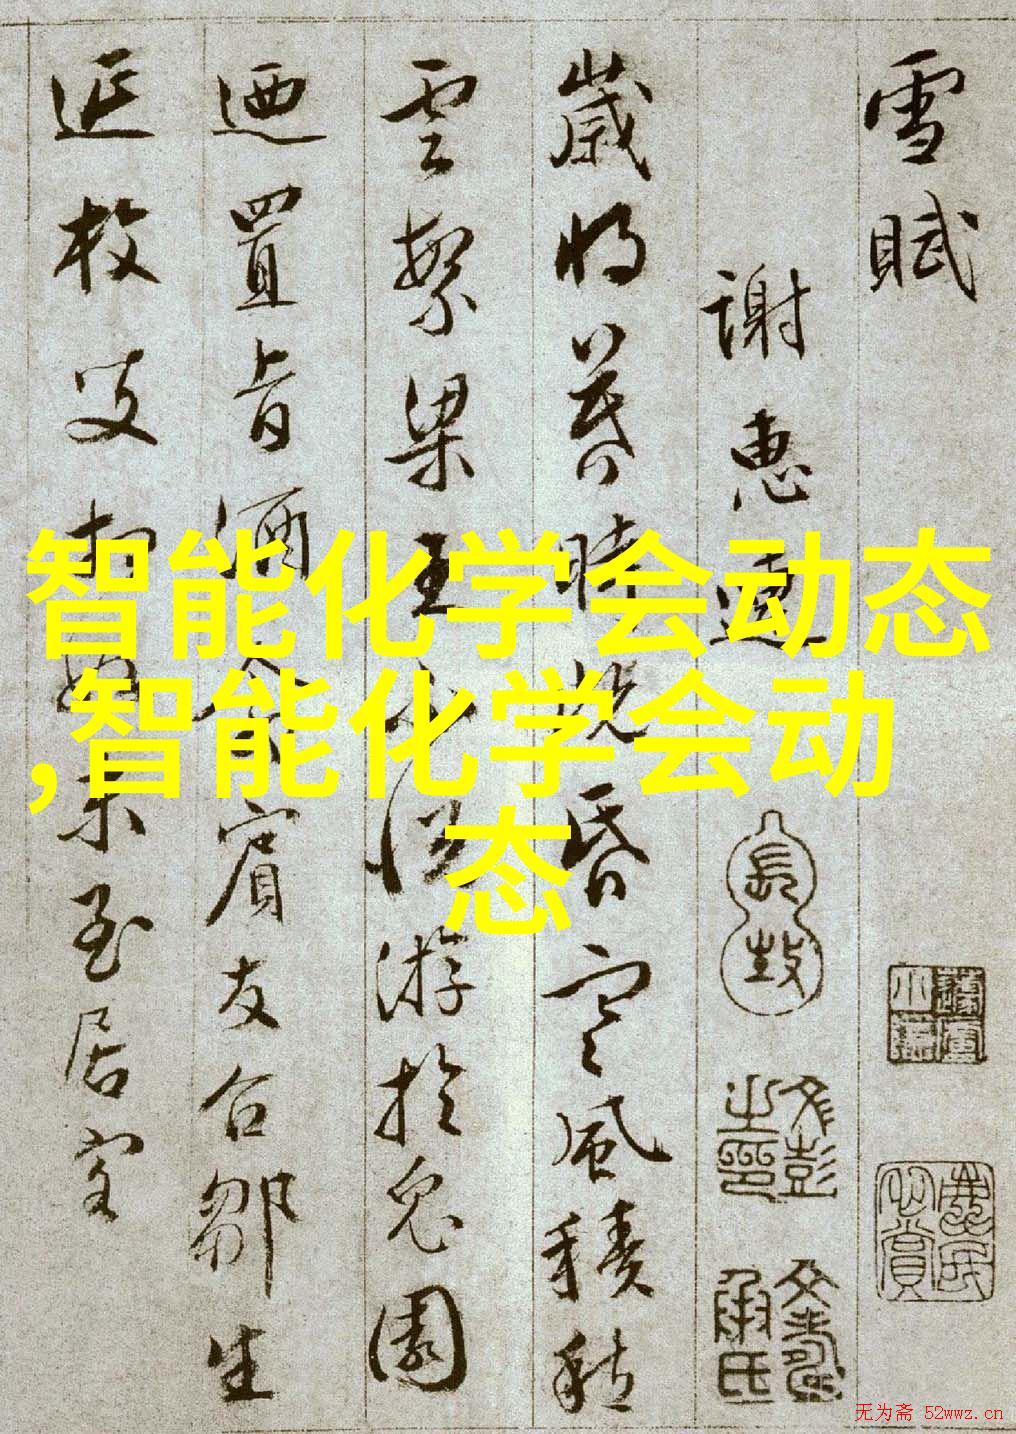 雪賦
謝惠連
歲將暮時既昏寒風積愁
雲繁梁王不悅游於兔園
迺置旨酒命賓友召鄒生
延枚叟相如末至居客
智能化学会动态
,智能化学会动
态
文彭
之印
无为斋 52wwz.cn